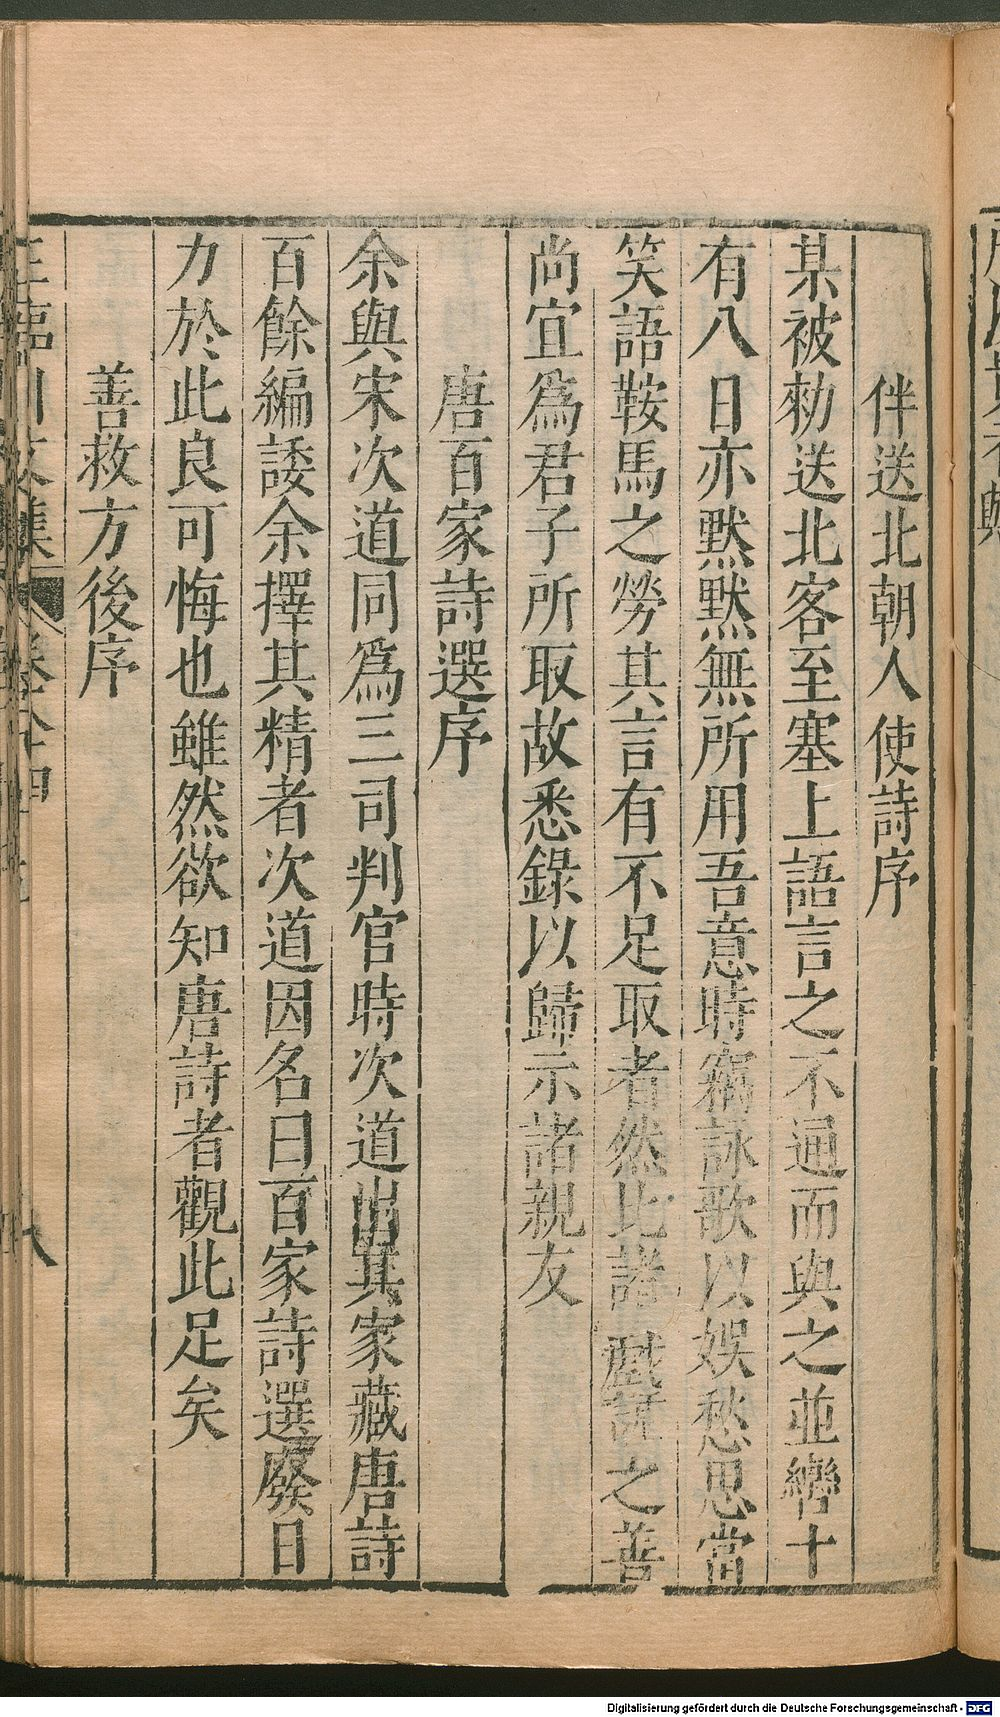 伴送北朝人使詩序
某被勑送北客至塞上語言之不通而與之並轡十
有八日亦黙黙無所用吾意時竊詠歌以娛愁思當
笑語鞍馬之勞其言有不足取者然比諸戲謔之善
尚宜爲君子所取故悉錄以歸示諸親友
唐百家詩選序
余與宋次道同爲三司判官時次道出其家藏唐詩
百餘編諉余擇其精者次道因名曰百家詩選廢日
力於此良可悔也雖然欲知唐詩者觀此足矣
善救方後序
王臨川文集 卷八十四 八
Digitalisierung gefördert durch die Deutsche Forschungsgemeinschaft - DFG